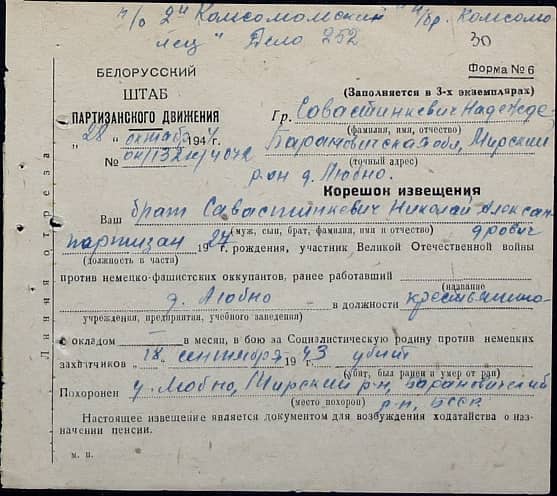 п/о 2й "Комсомольский" "/бр. Комсомо
лец" Дело 252
30
Форма № 6
БЕЛОРУССКИЙ
ШТАБ
ПАРТИЗАНСКОГО ДВИЖЕНИЯ
„28 „ октября 1944
№
(Заполняется в 3-х экземплярах)
Гр. Савастинкевич Надежде
(фамилия, имя, отчество)
Барановичская обл, Мирский
(точный адрес)
р-он д. Любно.
Корешок извещения
Ваш брат Савастинкевич Николай Алексан
(муж, сын, брат, фамилия, имя и отчество) дрович
партизан 1927 рождения, участник Великой Отечественной войны
(должность в части)
против немецко-фашистских оккупантов, ранее работавший
(название
д. Любно в должности
учреждения, предприятия, учебного заведения)
с окладом — в месяц, в бою за Социалистическую родину против немецких
захватчиков „18 „ сентября 1943 убит
(убит, был ранен и умер от ран)
Похоронен у. Любно, Мирский р-н, Барановичский
(место похорон) р-н, БССР
Настоящее извещение является документом для возбуждения ходатайства о наз-
начении пенсии.
м. п.
Линия отреза